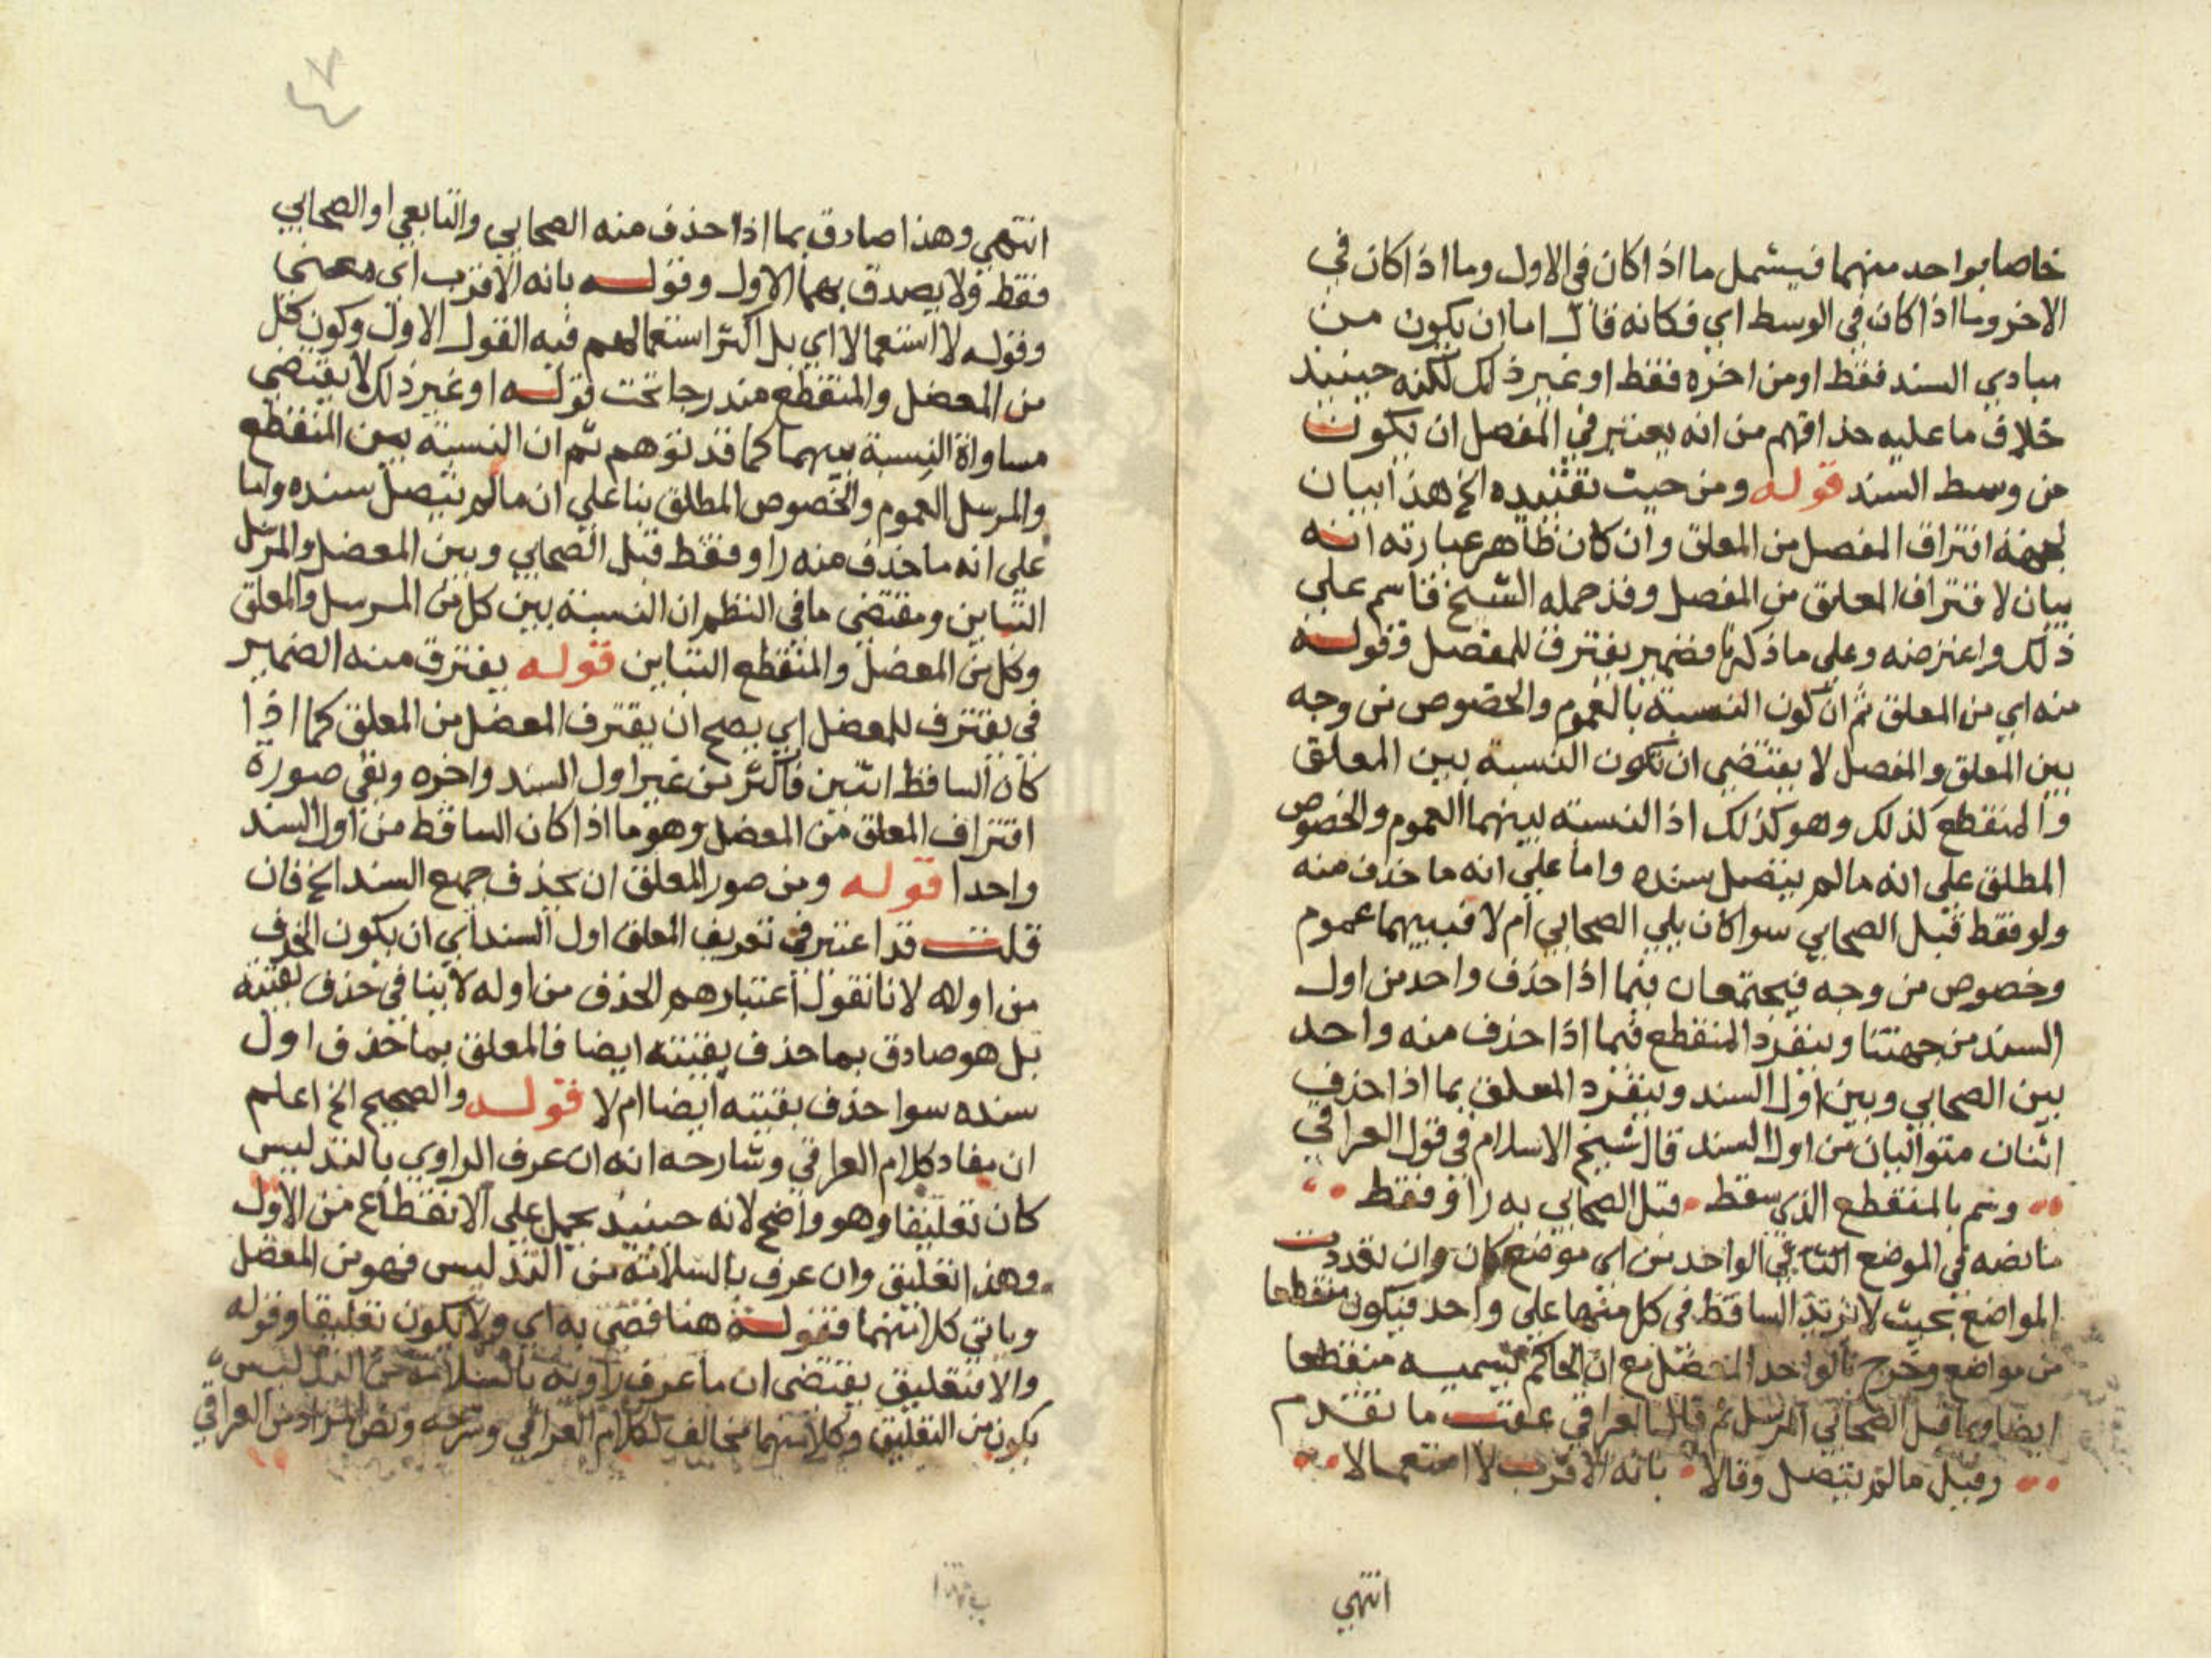 خاصا بواحد منهما فيشمل ما اذا كان في الاول وما اذا كان في
الاخر وما اذا كان في الوسط اي فكانه قال اما ان يكون من
مبادي السند فقط او من اخره فقط او غير ذلك لكنه حينيذ
خلاف ما عليه حذاقهم من انه يعتبر في المعضل ان يكون
من وسط السند قوله ومن حيث تقييده الخ هذا بيان
لجهة افتراق المعضل من المعلق وان كان ظاهر عبارته انه
بيان لافتراق المعلق من المعضل وقد حمله الشيخ قاسم علي
ذلك واعترضه وعلي ما ذكرنا فضمير يفترق للمعضل وقوله
منه اي من المعلق ثم ان كون النسبة بالعموم والخصوص من وجه
بين المعلق والمعضل لا يقتضي ان تكون النسبة بين المعلق
والمنقطع كذلك وهو كذلك اذ النسبة بينهما العموم والخصوص
المطلق علي انه ما لم يتصل سنده واما علي انه ما حذف منه
ولو فقط قبل الصحابي سوا كان يلي الصحابي ام لا فبينهما عموم
وخصوص من وجه فيجتمعان فيما اذا حذف واحد من اول
السند من جهتنا وينفرد المنقطع فيما اذا حذف منه واحد
بين الصحابي وبين اول السند وينفرد المعلق بما اذا حذف
اثنان متواليان من اول السند قال شيخ الاسلام في قول العراقي
وسم بالمنقطع الذي سقط قبل الصحابي به راو فقط
ما نصه في الموضع الواحد من اي موضع كان وان تعددت
المواضع بحيث لا يزيد الساقط في كل منها علي واحد فيكون منقطعا
من مواضع وخرج بالواحد المعضل مع ان الحاكم يسميه منقطعا
ايضا وبما قبل الصحابي المرسل ثم قال العراقي عقب ما تقدم
وقيل ما لم يتصل وقالا بانه الاقرب لا استعمالا
انتهي
٤٧
انتهي وهذا صادق بما اذا حذف منه الصحابي والتابعي او الصحابي
فقط ولا يصدق بهما الاول وقوله بانه الاقرب اي معني
وقوله لا استعمالا اي بل اكثر استعمالهم فيه القول الاول وكون كل
من المعضل والمنقطع مندرجا تحت قوله او غير ذلك لا يقتضي
مساواة النسبة بينهما كما قد توهم ثم ان النسبة بين المنقطع
والمرسل العموم والخصوص المطلق بنا علي ان ما لم يتصل سنده واما
علي انه ما حذف منه راو فقط قبل الصحابي وبين المعضل والمرسل
التباين ومقتضي ما في النظم ان النسبة بين كل من المرسل والمعلق
وكل من المعضل والمنقطع التباين قوله يفترق منه الضمير
في يفترق للمعضل اي يصح ان يفترق المعضل من المعلق كما اذا
كان الساقط اثنين فاكثر من غير اول السند واخره وبقي صورة
افتراق المعلق من المعضل وهو ما اذا كان الساقط من اول السند
واحدا قوله ومن صور المعلق ان يحذف جميع السند الخ فان
قلت قد اعتبر في تعريف المعلق اول السند اي ان يكون الحذف
من اوله لانا نقول اعتبارهم الحذف من اوله لا ينافي حذف بقيته
بل هو صادق بما حذف بقيته ايضا فالمعلق بما حذف اول
سنده سوا حذف بقيته ايضا ام لا قوله والصحيح الخ اعلم
ان مفاد كلام العراقي وشارحه انه ان عرف الراوي بالتدليس
كان تعليقا وهو واضح لانه حينيذ يحمل علي الانقطاع من الاول
وهذا تعليق وان عرف بالسلامة من التدليس فهو من المعضل
وياتي كلامهما فقوله هنا قضي به اي ولا يكون تعليقا وقوله
والا فتعليق يقتضي ان ما عرف راويه بالسلامة من التدليس
يكون من التعليق وكلامهما مخالف لكلام العراقي وشرحه ونص المراد من العراقي